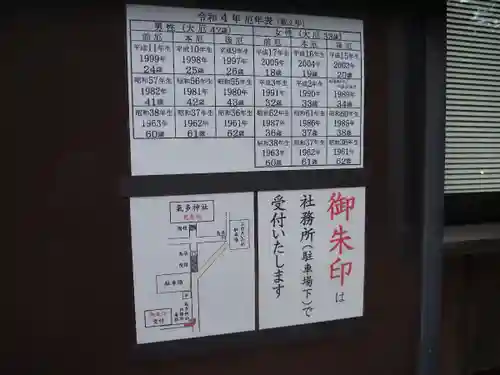 令和4年厄年表(数え年)
男性(大厄42歳) 女性(大厄33歳)
前厄 本厄 後厄 前厄 本厄 後厄
平成11年生 平成10年生 平成9年生 平成17年生 平成16年生 平成15年生
1999年 1998年 1997年 2005年 2004年 2003年
24歳 25歳 26歳 18歳 19歳 20歳
昭和57年生 昭和56年生 昭和55年生 平成3年生 平成2年生
1982年 1981年 1980年 1991年 1990年 1989年
41歳 42歳 43歳 32歳 33歳 34歳
昭和38年生 昭和37年生 昭和36年生 昭和62年生 昭和61年生 昭和60年生
1963年 1962年 1961年 1987年 1986年 1985年
60歳 61歳 62歳 36歳 37歳 38歳
昭和38年生 昭和37年生 昭和36年生
1963年 1962年 1961年
60歳 61歳 62歳
氣多神社
駐車場
御朱印は
社務所(駐車場下)で
受付いたします